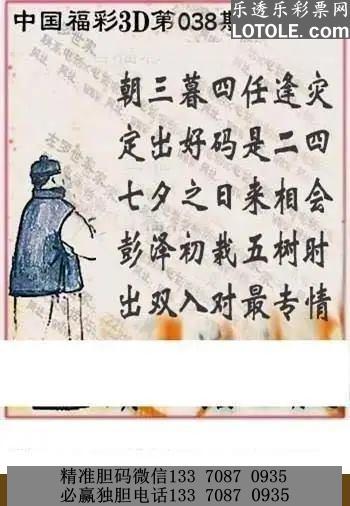 中国福彩3D第038期
乐透乐彩票网
LOTOLE.COM
朝三暮四任逢灾
定出好码是二四
七夕之日来相会
彭泽初栽五树时
出双入对最专情
精准胆码微信133 7087 0935
必赢独胆电话133 7087 0935